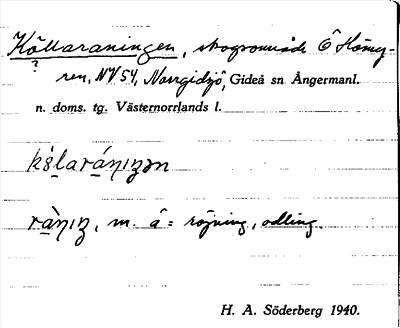 Källararåningen, skogsområde Ö Häng-
?
ren, NV 54, Norrgidjö, Gideå sn Ångermanl.
n. doms. tg. Västernorrlands l.
rà̱ŋıŋ, m. â = röjning, odling.
H. A. Söderberg 1940.